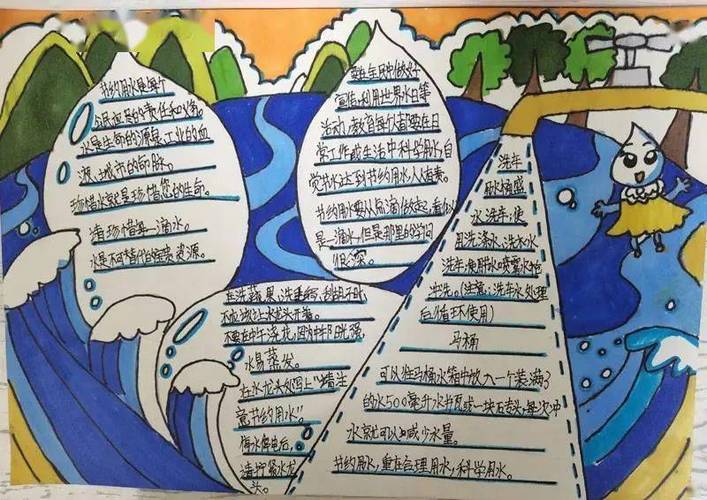 节约用水是每个
公民应尽的责任和义务,
水是生命的源泉,工业的血
液,城市的命脉。
珍惜水就是珍惜您的生命。
请珍惜每一滴水。
水是不可替代的宝贵资源。
宣传,利用世界水日等
活动,教育每个人都要在日
常工作或生活中科学用水,自
觉节水达到节约用水,人人有责。
节约用水要从点滴做起,看似
是一滴水,但是那里的学问
很深。
在洗蔬果、洗手
不如让水龙头开着。
不要在中午浇花,因为中午阳光强,
水易蒸发。
在水龙头处写上"请注
意节约用水"。
停水停电后,
请拧紧水龙
头。
洗车
用水桶盛
水洗车,使
用洗涤水、洗衣水
洗车,使用喷雾水枪
冲洗。(注意:洗车水处理
后循环使用)
马桶
可以在马桶水箱中放入一个装满了
的水500毫升水瓶或一块石头,每次冲
水就可以减少水量。
节约用水,重在合理用水,科学用水。